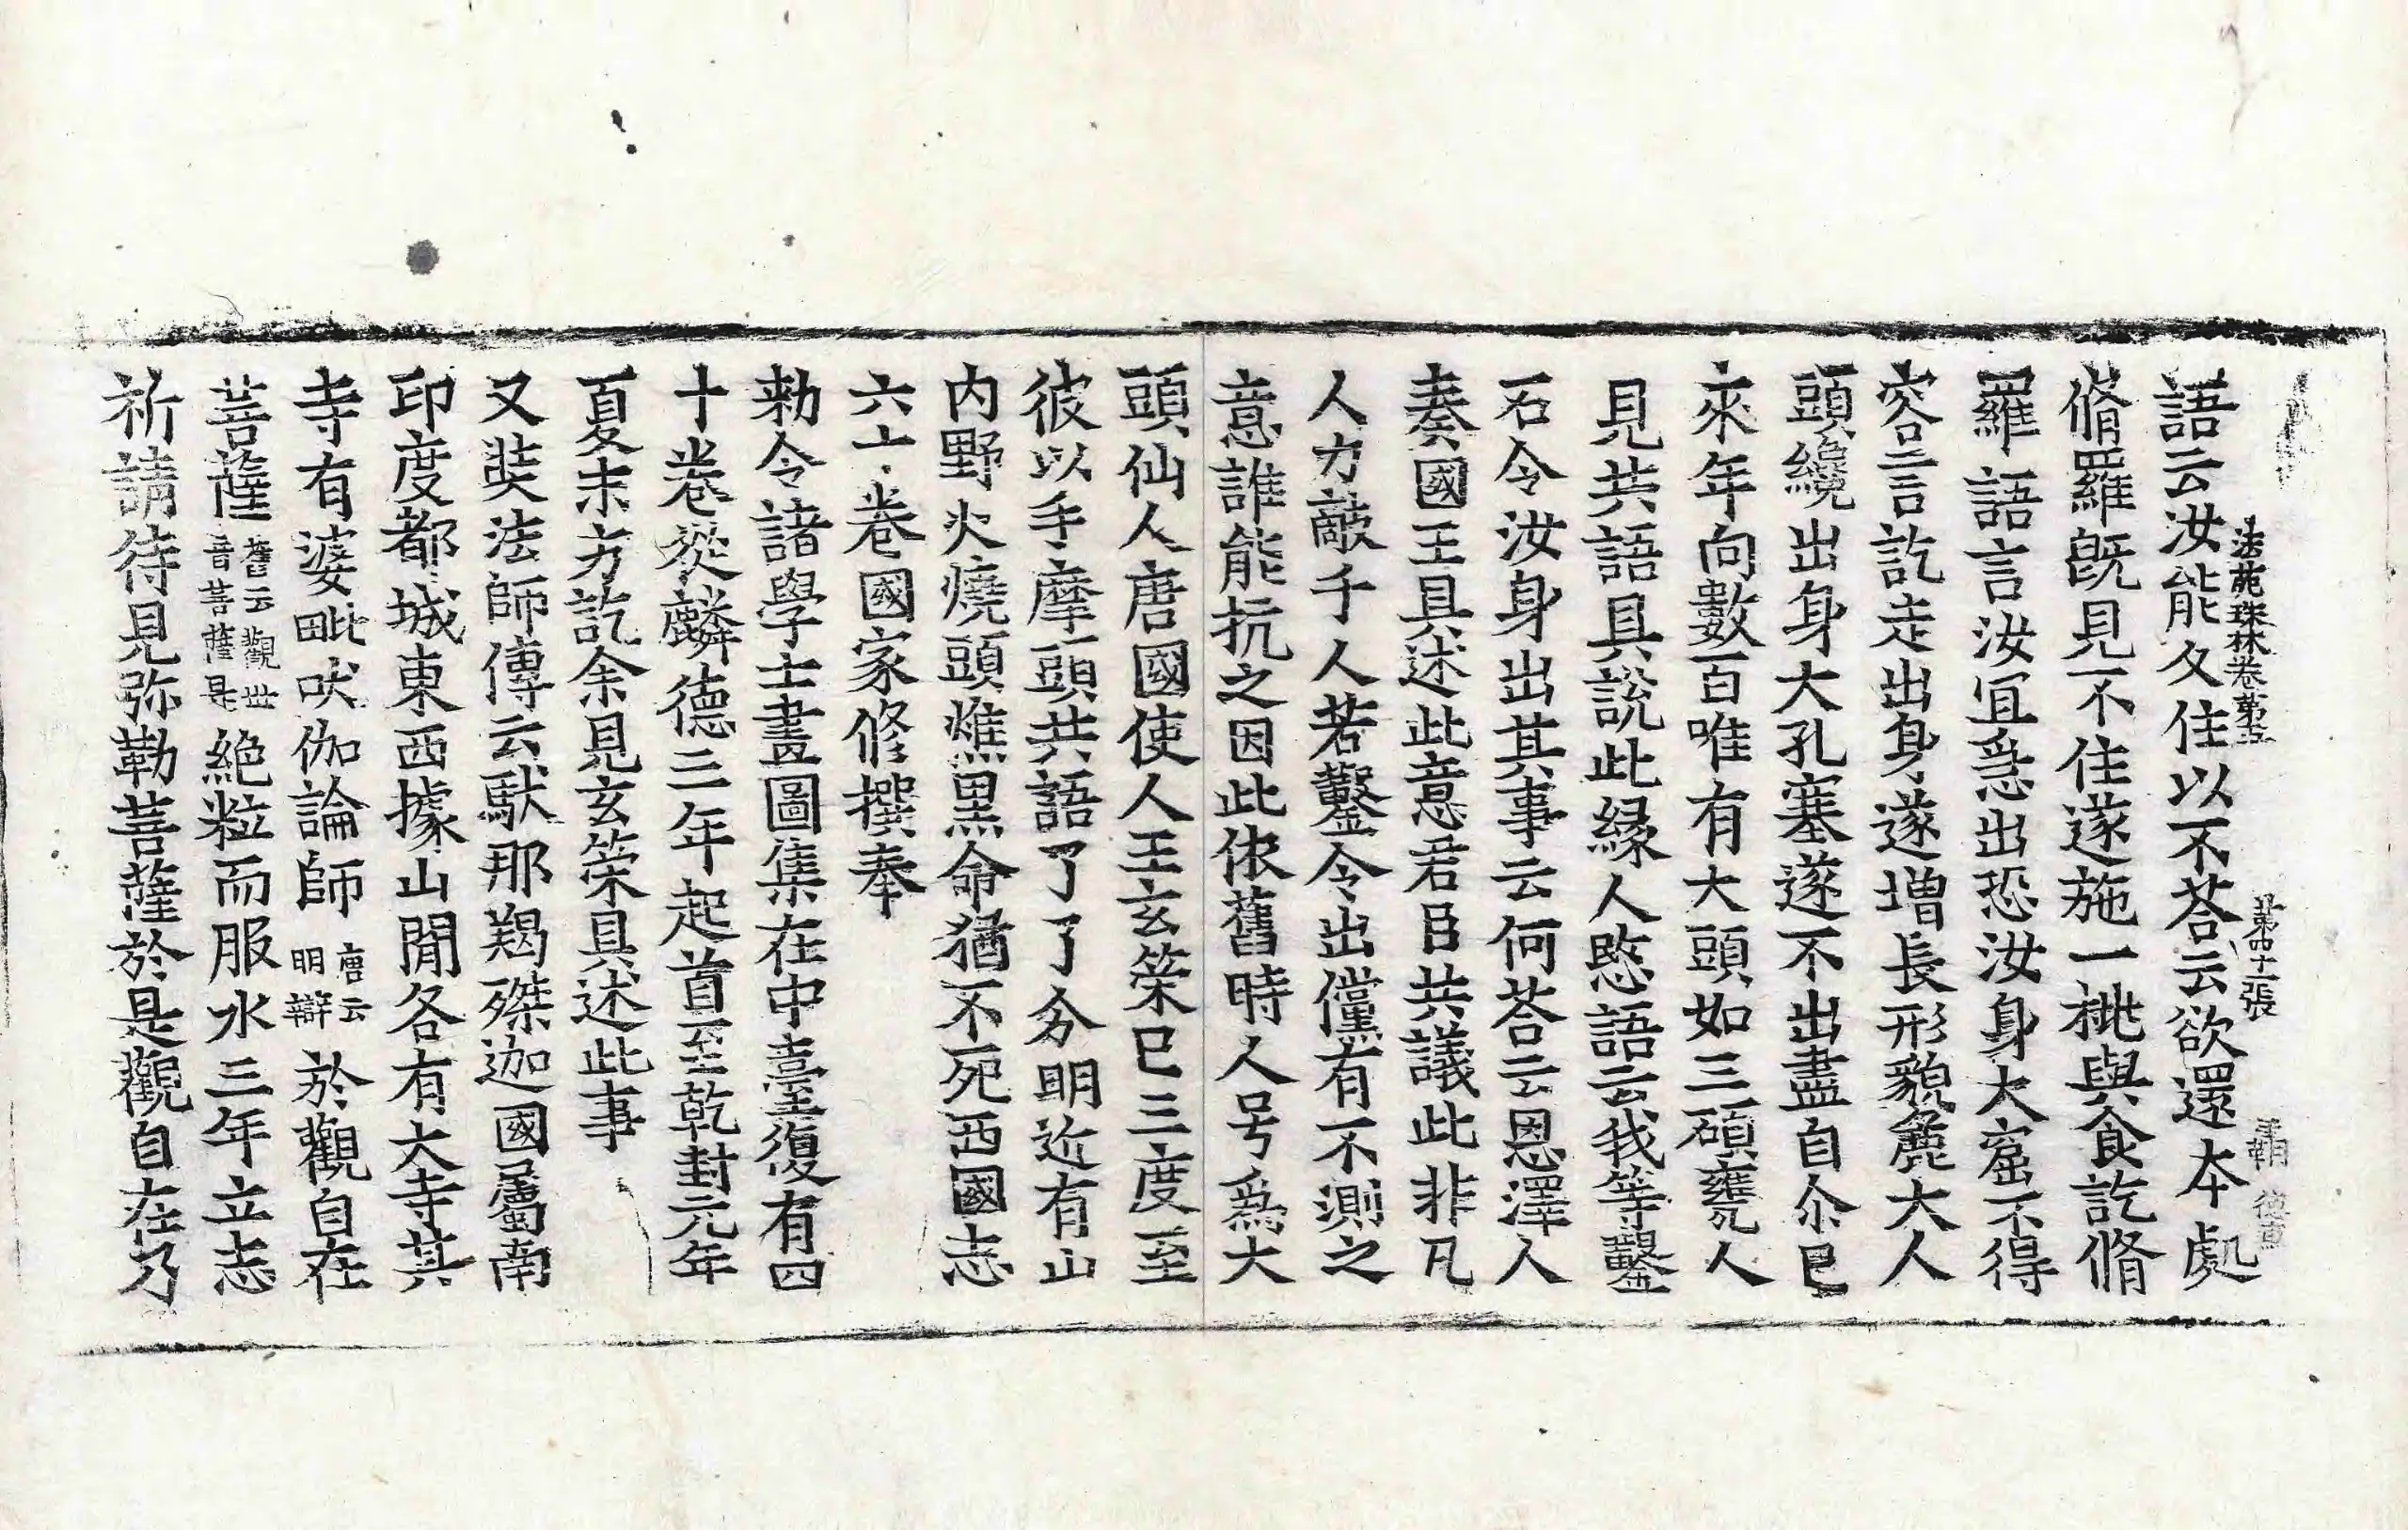 法苑珠林卷第五 第四十二張 覇
語云汝能久住以不荅云欲還本處
脩羅旣見不住遂施一桃與食訖脩
羅語言汝宜急出恐汝身大窟不得
容言訖走出身遂增長形貌麁大人
頭纔出身大孔塞遂不出盡自尒已
來年向數百唯有大頭如三碩甕人
見共語具說此緣人愍語云我等鑿
石令汝身出其事云何荅云恩澤人
奏國王具述此意君臣共議此非凡
人力敵千人若鑿令出儻有不測之
意誰能抗之因此依舊時人号爲大
頭仙人唐國使人王玄策已三度至
彼以手摩頭共語了了分明近有山
内野火燒頭燋黑命猶不死西國志
六十卷國家修撰奉
勑令諸學士畫圖集在中臺復有四
十卷從麟德三年起首至乾封元年
夏末方訖余見玄策具述此事
又奘法師傳云馱那羯磔迦國屬南
印度都城東西據山閒各有大寺其
寺有婆毗吠伽論師唐云明辯於觀自在
菩薩舊云觀世音菩薩是絶粒而服水三年立志
祈請待見弥勒菩薩於是觀自在乃